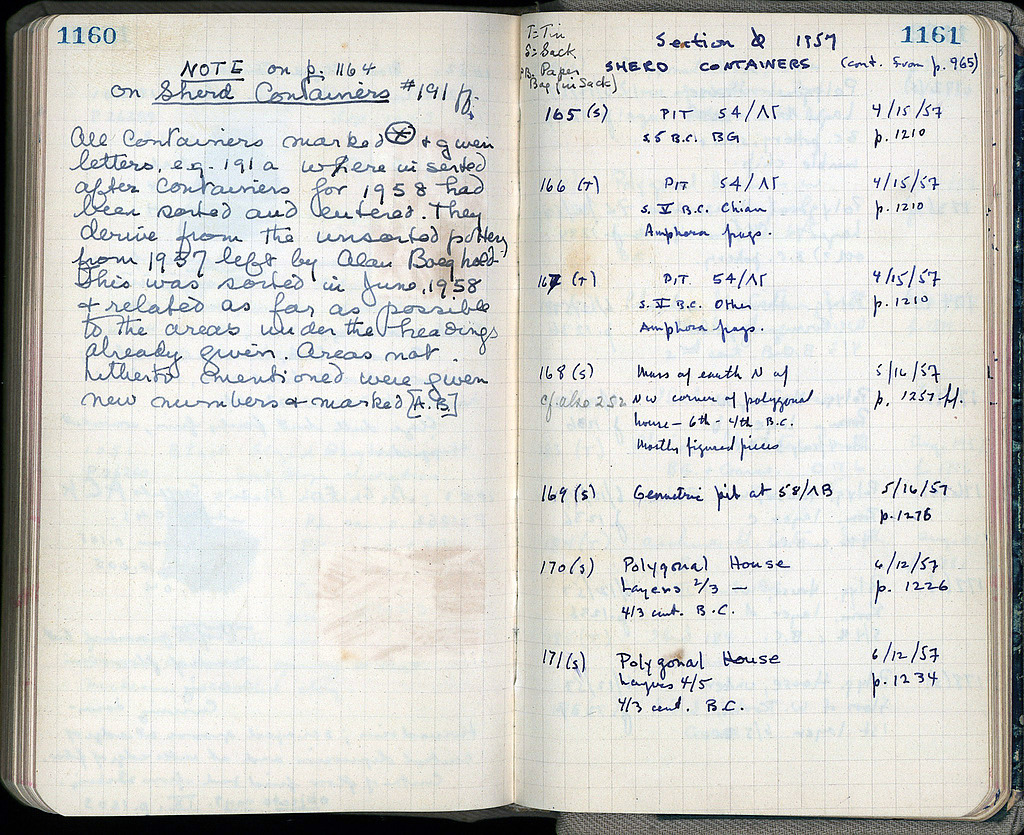 1160
NOTE on p. 1164
on Sherd Containers #191 ff.
All Containers marked ⊛ & given
letters, e.g. 191 a where inserted
after Containers for 1958 had
been sorted and entered. They
derive from the unsorted pottery
from 1957 left by Alan Boeghold-
This was sorted in June, 1958
& related as far as possible
to the areas under the headings
already given. Areas not
hitherto mentioned were given
new numbers & marked [A.B]
1161
T=Tin
S=Sack
PB. Paper
Bag (in Sack)
Section 1957
SHERD CONTAINERS (cont. from p. 965)
165 (s) PIT 54/ΛΓ 4/15/57
s.5 B.C. BG p. 1210
166 (T) PIT 54/ΛΓ 4/15/57
s. V B.C. Chian p. 1210
Amphora frags.
167 (T) PIT 54/ΛΓ 4/15/57
s. V B.C. Other p. 1210
Amphora frags.
168 (s) Mass of earth N of 5/16/57
cf. also 252 NW corner of polygonal p. 1257 ff.
house - 6th - 4th B.C.
Mostly figured pieces
169 (s) Geometric pit at 58/ΛB 5/16/57
p. 1278
170 (s) Polygonal House 6/12/57
Layers 2/3 — p. 1226
4/3 cent. B.C.
171 (s) Polygonal House 6/12/57
Layers 4/5 p. 1234
4/3 cent. B.C.